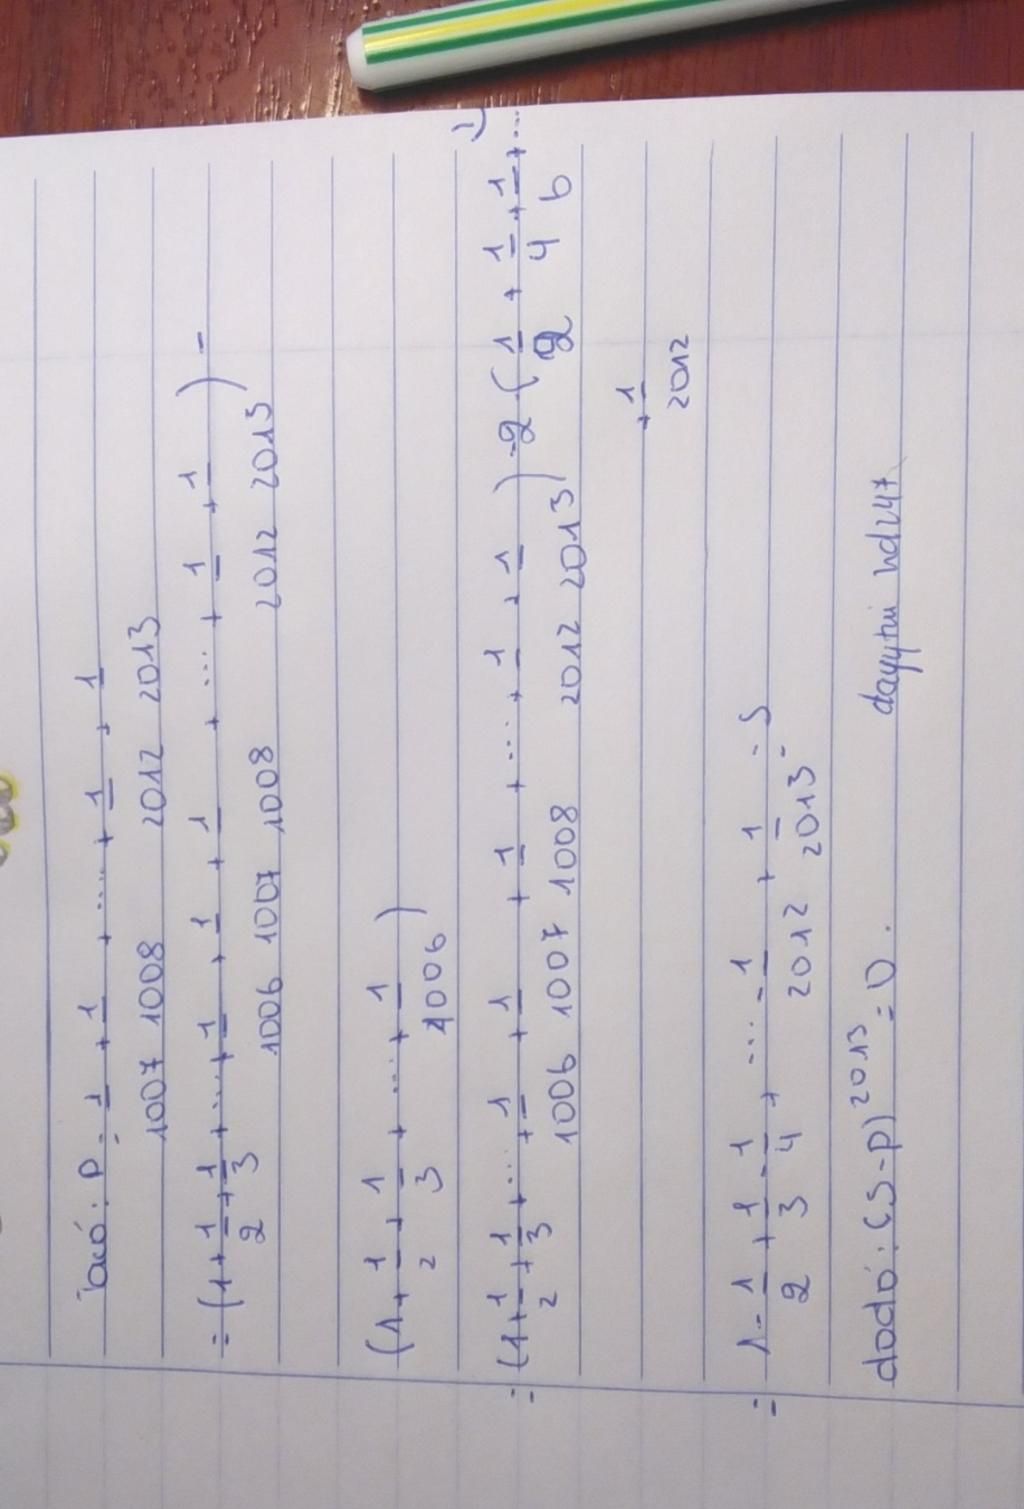 Ta có: P = 1/1007 + 1/1008 + .... + 1/2012 + 1/2013
= (1 + 1/2 + 1/3 + .... + 1/1006 + 1/1007 + 1/1008 + .... + 1/2012 + 1/2013) -
(1 + 1/2 + 1/3 + .... + 1/1006)
= (1 + 1/2 + 1/3 + .... + 1/1006 + 1/1007 + 1/1008 + .... + 1/2012 + 1/2013) - 2(1/2 + 1/4 + 1/6 + ...
+ 1/2012)
= 1 - 1/2 + 1/3 - 1/4 + .... - 1/2012 + 1/2013 = S
do đó: (S-P)^2013 = 0.